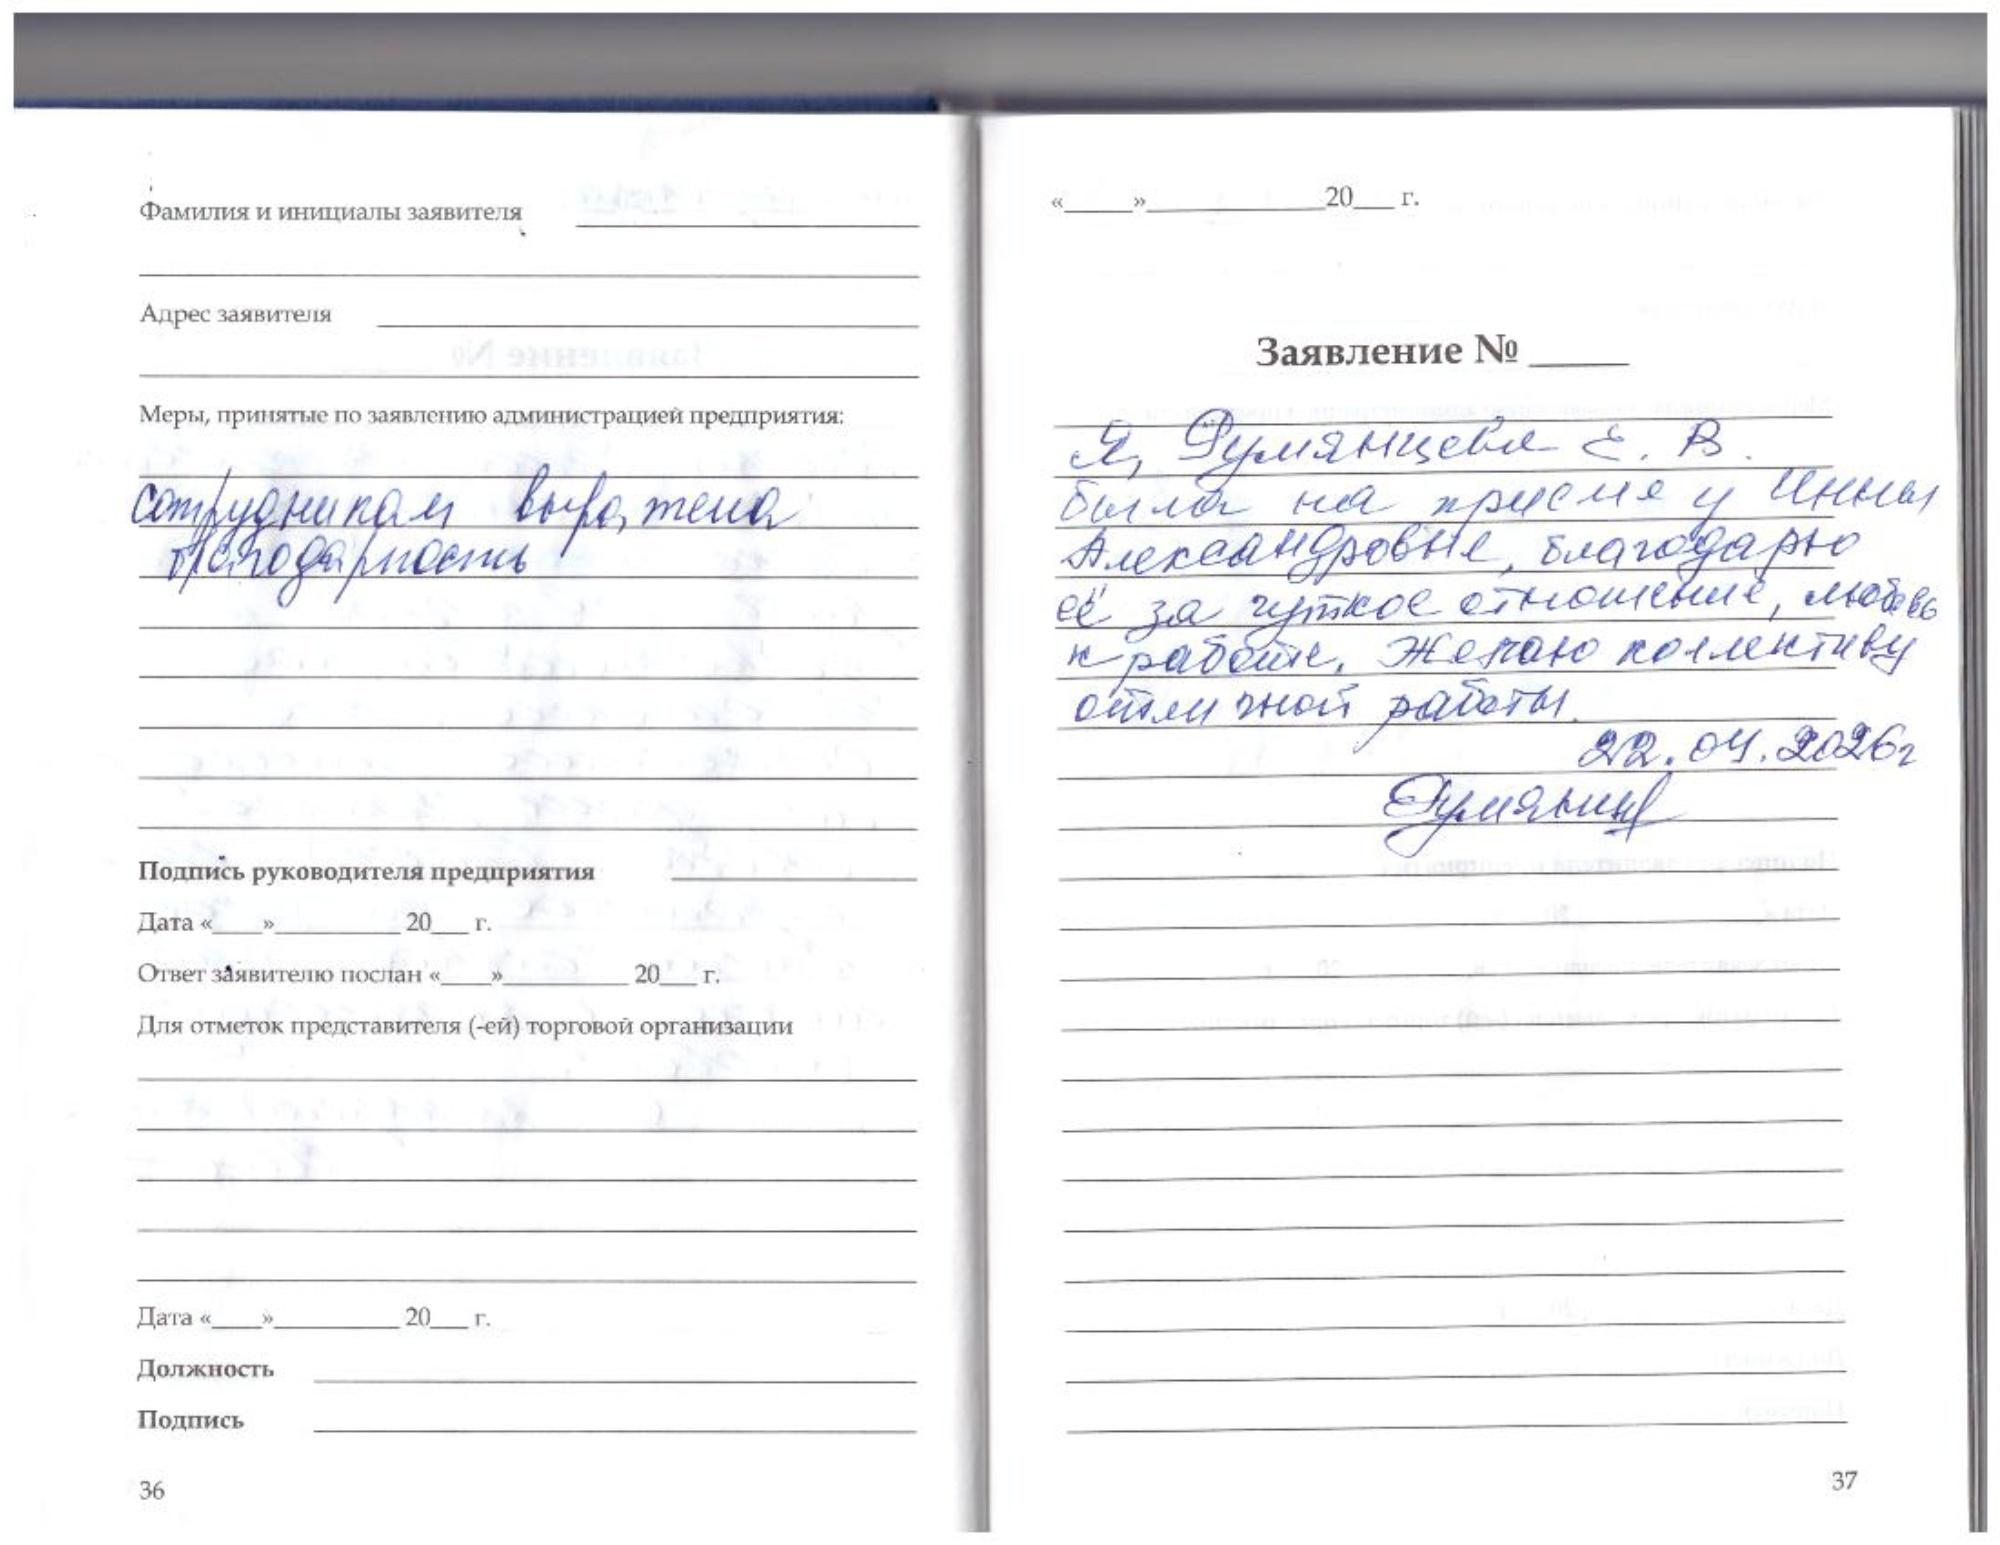 Фамилия и инициалы заявителя
Адрес заявителя
Меры, принятые по заявлению администрацией предприятия:
сотрудникам выражена
благодарность
Подпись руководителя предприятия
Дата «____»__________ 20___ г.
Ответ заявителю послан «____»__________ 20___ г.
Для отметок представителя (-ей) торговой организации
Дата «____»__________ 20___ г.
Должность
Подпись
36
«_____»_____________20___ г.
Заявление № _____
Я, Румянцева Е. В.
была на приеме у Инны
Александровне, благодарю
её за чуткое отношение, любовь
к работе. Желаю коллективу
отличной работы.
22.04.2026г
37